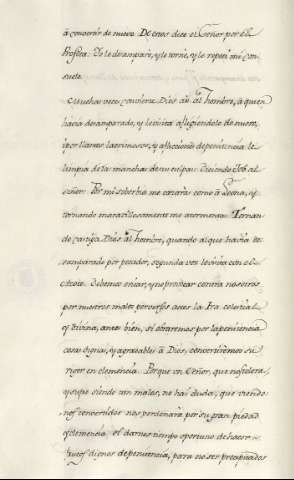 à convertir de nuevo. De estos dice el Señor por el
Profeta: Yo le desamparè, y le torné, y le repetì mi con-
suelo.
Muchas veces convierte Dios assi al hombre, à quien
havia desamparado, y le visita afligiendole de nuevo,
por llantos lacrimosos, y afliccion de penitencia le
limpia de la mancha de su culpa: Diciendo Job al
Señor: Por mi sobervia me cazarás como à Leona, y
tornando maravillosamente me atormentas. Tornan-
do castiga Dios al hombre, quando al que havia de-
samparado por pecador, segunda vez le visita con el
Debemos orar, y no provocar contra nosotros
por nuestros males perversos actos la Ira celestial
y Divina, antes bien, si obraremos por la penitencia
cosas dignas, y agradables à Dios, convertiremos su
rigor en clemencia. Porque un Señor, que nos tolera,
y sufre siendo malos, no hai duda, que viendo-
nos convertidos nos perdonarà por su gran piedad
y clemencia, el darnos tiempo oportuno de hacer
frutos dignos de penitencia, para no ser precipitados